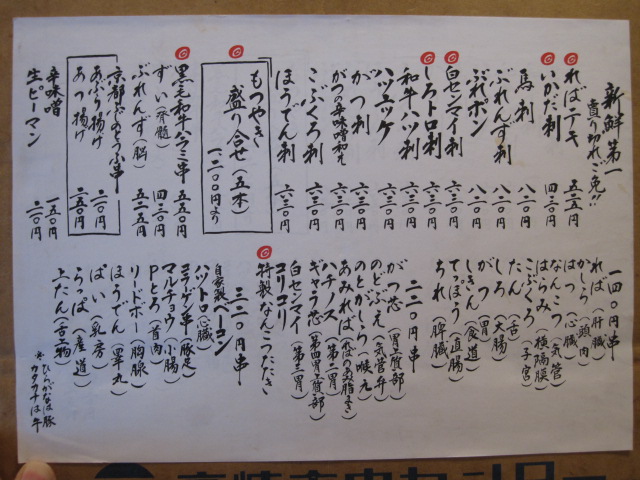 新鮮第一
売り切れご免!!
ればテキ 五二五円
いかだ刺 四三〇円
馬刺 八四〇円
ぶれんず刺 八二〇円
ぶれポン 八二〇円
白センマイ刺 六三〇円
しろトロ刺 六三〇円
和牛ハツ刺 六三〇円
ハツユッケ 六三〇円
がつ刺 六三〇円
がつの辛味噌和え 六三〇円
こぶくろ刺 六三〇円
ほうでん刺 六三〇円
もつやき
盛り合せ(五本)
一、二〇〇円より
黒毛和牛ハラミ串 五五〇円
ずい(脊髄) 四三〇円
ぶれんず(脳) 五二五円
京都おとうふ串
あぶり揚げ 二一〇円
あつ揚げ 二五〇円
辛味噌 一五〇円
生ピーマン 二一〇円
一四〇円串
ればー(肝臓)
かしら(頭肉)
はつ(心臓)
なんこつ(気管)
はらみ(横隔膜)
こぶくろ(子宮)
たん(舌)
しろ(大腸)
がつ(胃)
しきん(食道)
てっぽう(直腸)
ちれ(脾臓)
二一〇円串
がつ芯(胃上質部)
のどぶえ(気管弁)
のどがしら(喉元)
あみれば(ればの炎脂まき)
ハチノス(第二胃)
ギャラ芯(第四胃上質部)
白センマイ(第三胃)
コリコリ
特製なんこつたたき
三二〇円串
自家製ベーコン
ハツトロ(心臓)
コラーゲン(豚足)
マルチョウ(小腸)
Pとろ(首肉)
リードボー(胸腺)
ほうでん(睾丸)
ぱい(乳房)
らっぱ(産道)
上たん(舌上物)
*ひらがなは豚
カタカナは牛